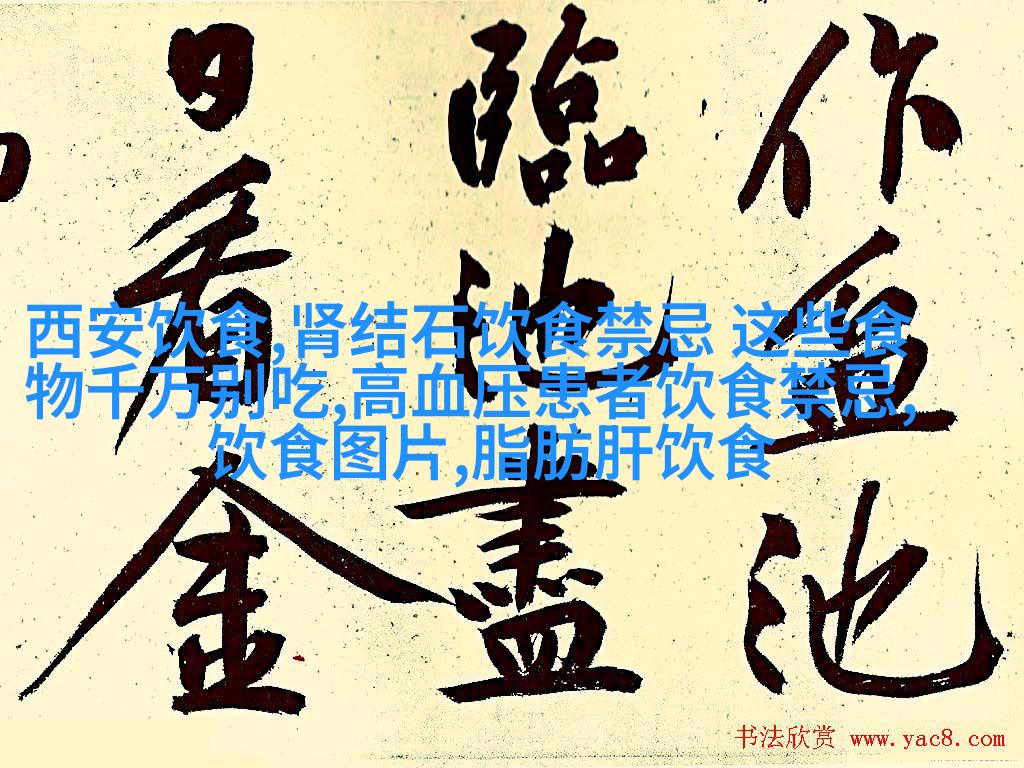 作盆池
臨池盡
日看金
西安饮食,肾结石饮食禁忌 这些食
物千万别吃,高血压患者饮食禁忌,
饮食图片,脂肪肝饮食
书法欣赏 www.yac8.com